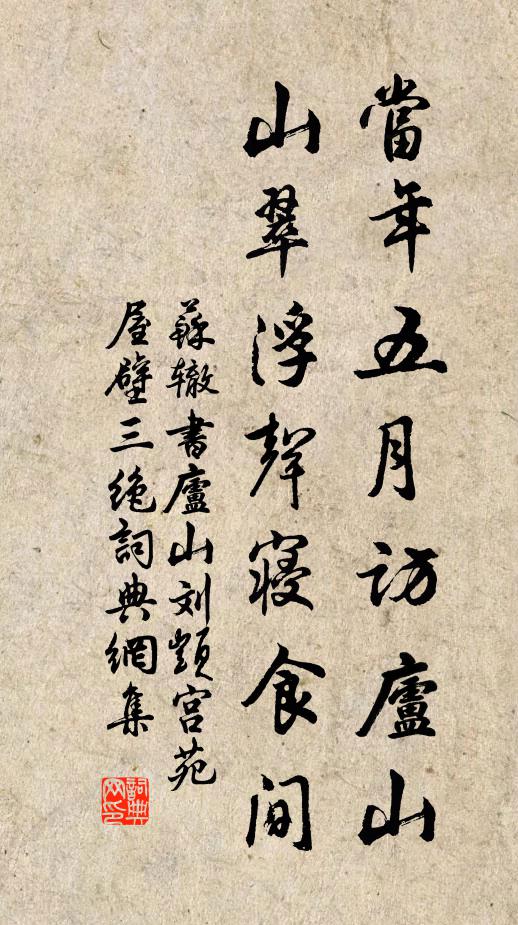 當年五月訪廬山
山翠浮聲寢食間
蘇轍書廬山刘顗宫苑
屋壁三絶詞典網集
詞典网印